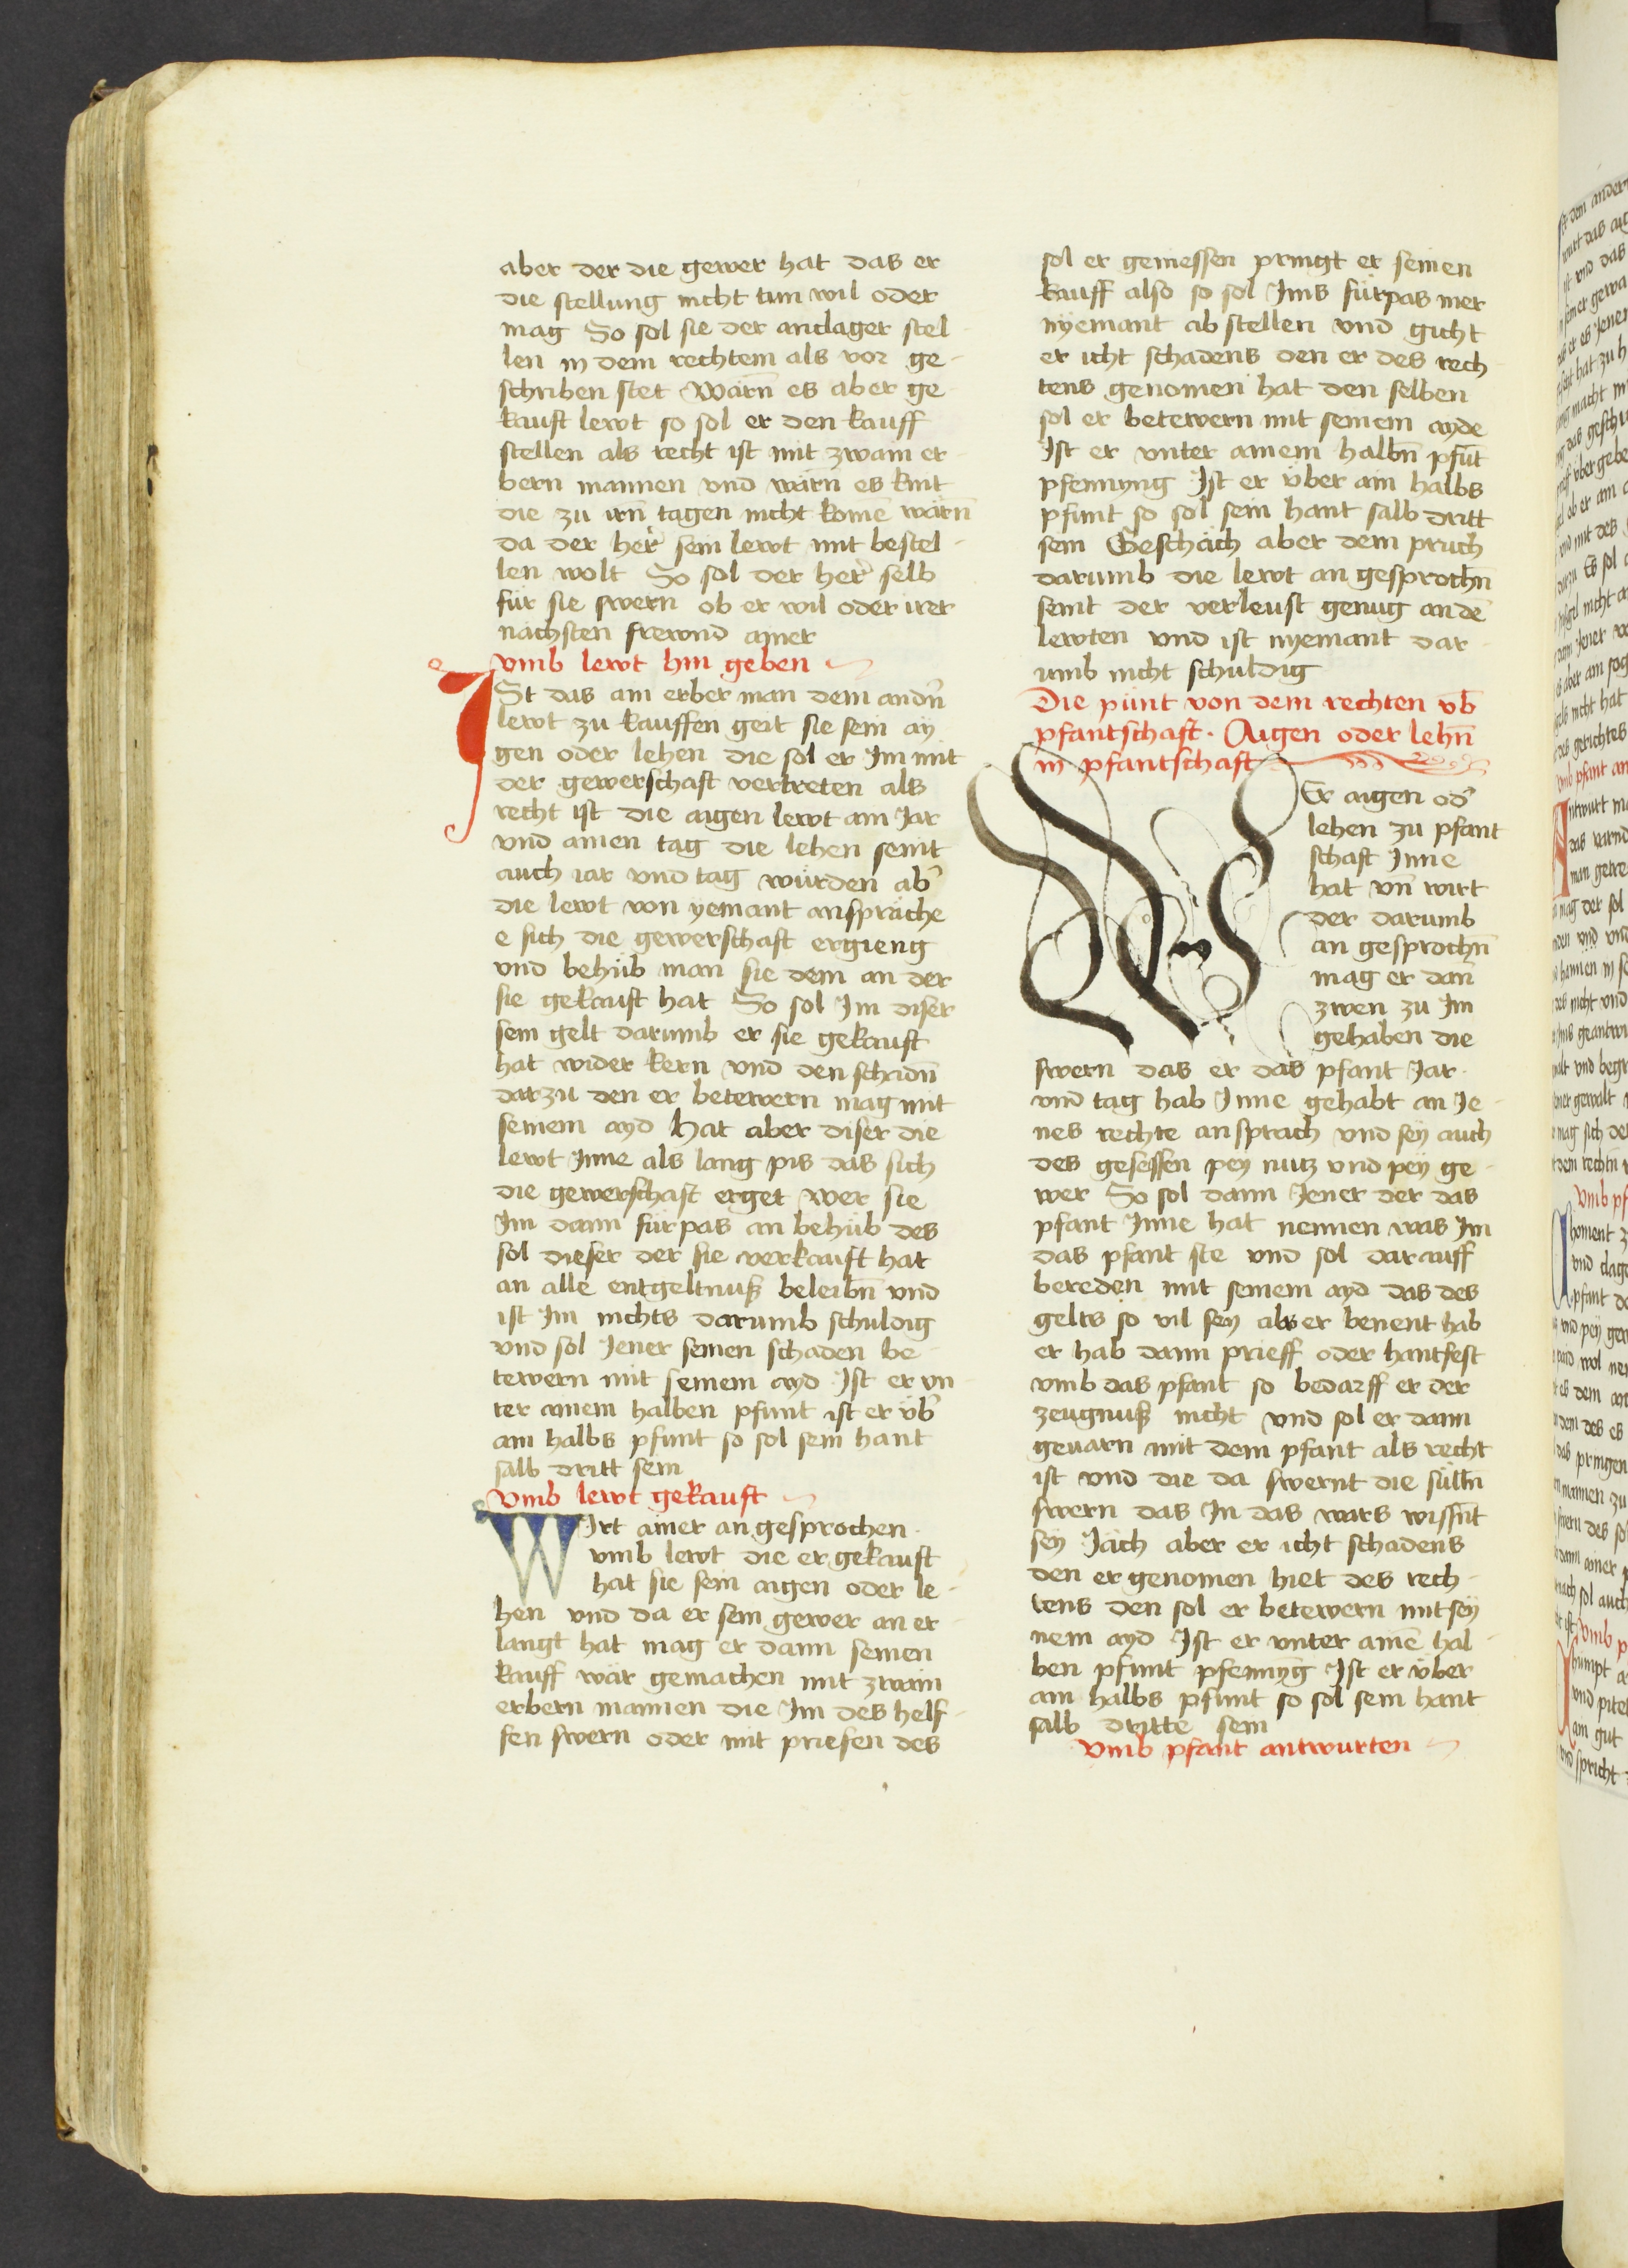 aber der die gewer hat das er
die stellung nicht tun wil oder
mag So sol sie der anclager stel
len in dem rechtem als vor ge-
schriben stet Wärn̄ es aber ge
kauft lewt so sol er den kauff
stellen als recht ist mit zwain er-
bern mannen vnd wärn̄ es kint
die zu irn̄ tagen nicht komē wärn̄
da der her̄ sein lewt mit bestel-
len wolt So sol der her̄ selb
für sie swern ob er wil oder irer
nächsten frewnd ainer
vmb lewt hin geben
ISt das ain erber man dem andn̄
lewt zu kauffen geit sie sein ay
gen oder lehen die sol er Im mit
der gewerschaft vertreten als
recht ist die aigen lewt ain Jar
vnd ainen tag die lehen seint
auch iar vnd tag würden ab̄
die lewt von yemant anspräche
e sich die gewerschaft ergieng
vnd behüb man sie dem an der
sie gekauft hat So sol Im diser
sein gelt darumb er sie gekauft
hat wider kern vnd den schadn̄
darzu den er betewern mag mit
seinem ayd Hat aber diser die
lewt Inne als lang pis das sich
die gewerschaft erget wer sie
Im dann fürpas an behüb des
sol dieser der sie verkauft hat
an alle entgeltnuß beleibn̄ vnd
ist Im nichts darumb schuldig
vnd sol Jener seinen schaden be-
tewern mit seinem ayd Ist er vn-
ter ainem halben pfunt ist er üb̄
ain halbs pfunt so sol sein hant
salb dritt sein
vmb lewt gekauft
WIrt ainer an gesprochen
vmb lewt die er gekauft
hat sie sein aigen oder le-
hen vnd da er sein gewer an er-
langt hat mag er dann seinen
kauff wär gemachen mit zwain
erbern mannen die Im des helf-
fen swern oder mit priefen des
sol er geniessen pringt er seinen
kauff also so sol Ims fürpas mer
nyemant ab stellen vnd gicht
er icht schadens den er des rech-
tens genomen hat den selben
sol er betewern mit seinem ayde
Ist er vnter ainem halbn̄ pfūt
pfennyng Ist er über ain halbs
pfunt so sol sein hant salb dritt
sein Geschäch aber dem pruch
darumb die lewt an gesprochn̄
seint der verleust genug an dē
lewten vnd ist nyemant dar-
umb nicht schuldig
Die pünt von dem rechten vb̄
pfantschaft. Aigen oder lehn̄
in pfantschaft
WEr aigen od̄
lehen zu pfant
schaft Inne
hat vn̄ wirt
der darumb
an gesprochn̄
mag er dan̄
zwen zu Im
gehaben die
swern das er das pfant Jar
vnd tag hab Inne gehabt an Je-
nes rechte ansprach vnd sey auch
des gesessen pey nutz vnd pey ge-
wer So sol dann Jener der das
pfant Inne hat nennen was Im
das pfant ste vnd sol darauff
bereden mit seinem ayd das des
gelts so vil sey als er benent hab
er hab dann prieff oder hantfest
vmb das pfant so bedarff er der
zeugnuß nicht vnd sol er dann
geuarn mit dem pfant als recht
ist vnd die da swernt die sülln̄
swern das In das wars wissn̄t
sey Jäch aber er icht schadens
den er genomen hiet des rech-
tens den sol er betewern mit sey
nem ayd Ist er vnter ainē hal-
ben pfunt pfennyg Ist er über
ain halbs pfunt so sol sein hant
salb dritte sein
vmb pfant antwurten